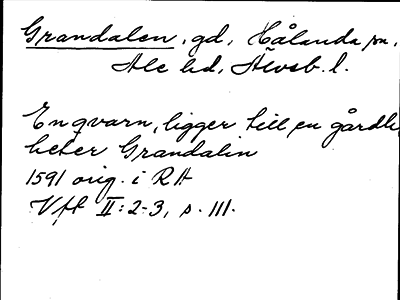 Grandalen, gd, Hålanda sn,
Ale hd, Älvsb. l.
En qvarn, ligger till en gårdh
heter Grandalin
1591 orig. i RA
Vfl II: 2-3, s. 111.